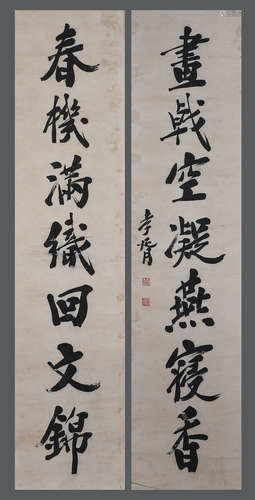 畫戟空凝燕寢香
孝胥
春機滿織回文錦